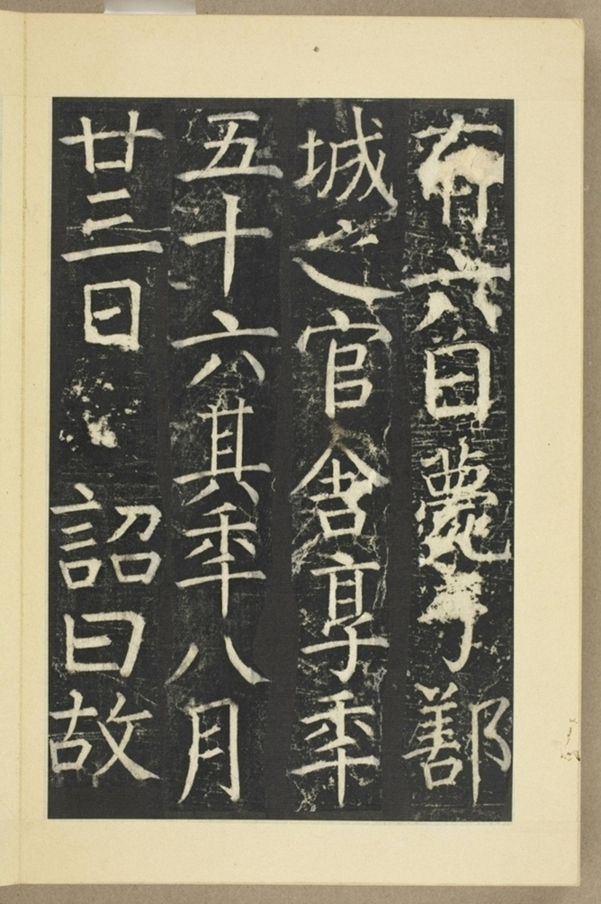 有六日薨于鄯
城之官舍享年
五十六其年八月
廿三日 詔曰故